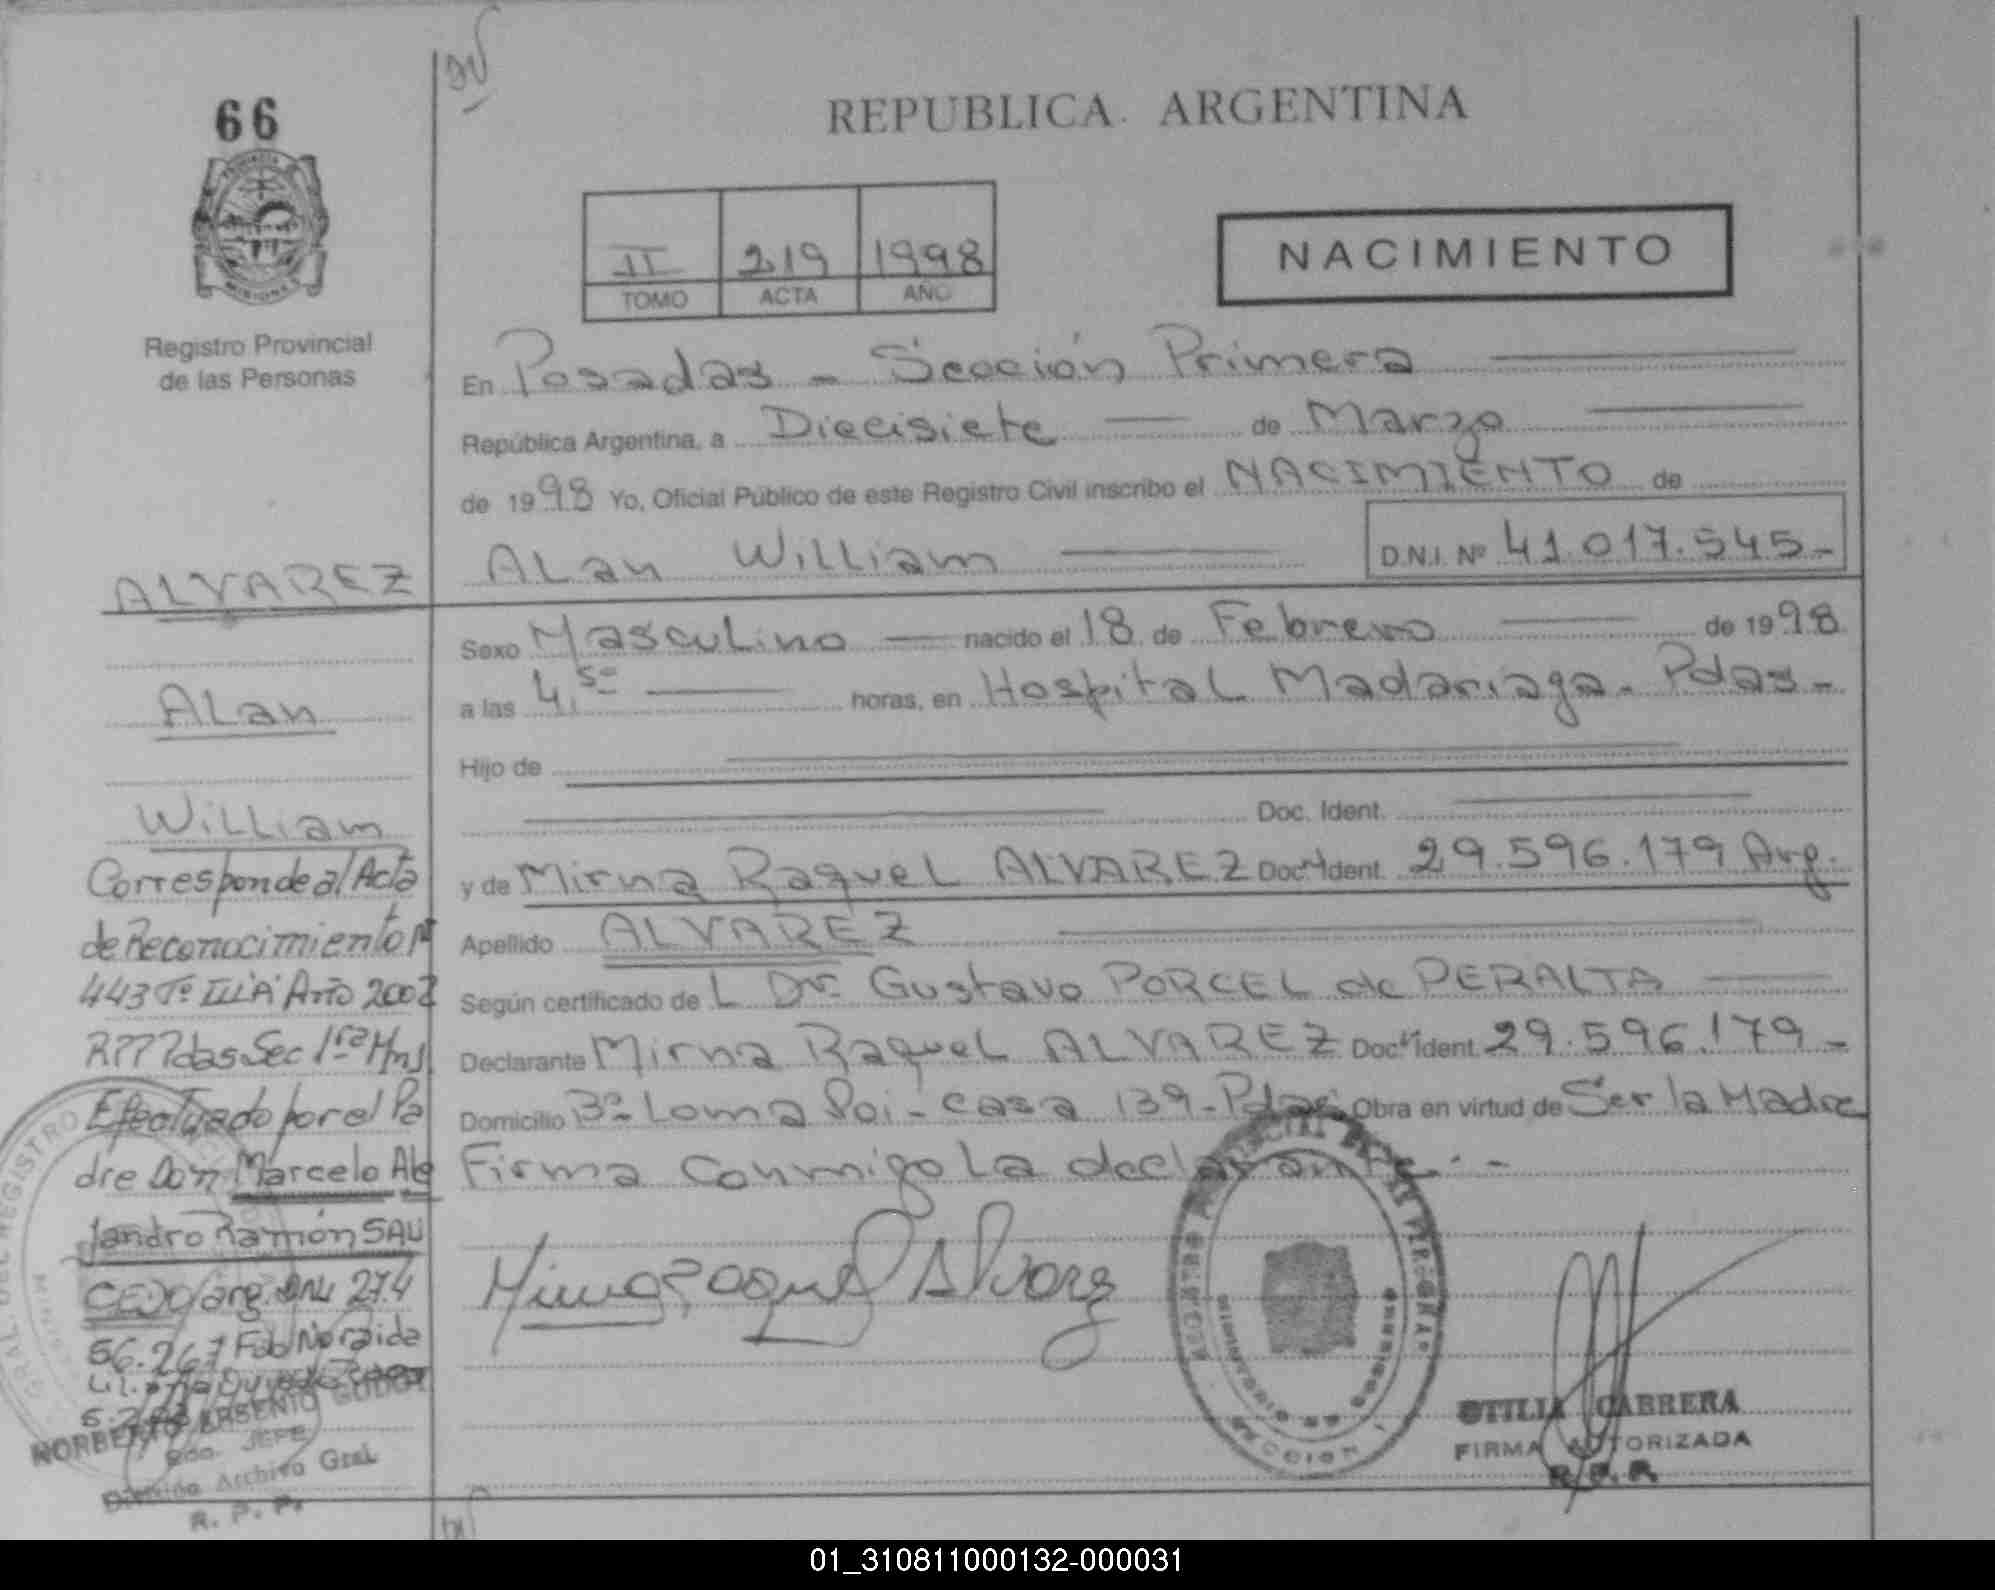 66
REPUBLICA ARGENTINA
PROVINCIA
MISIONES
Registro Provincial
de las Personas
II 219 1998
TOMO ACTA AÑO
NACIMIENTO
En Posadas - Sección Primera
República Argentina, a Diecisiete de Marzo
de 1998 Yo, Oficial Público de este Registro Civil inscribo el NACIMIENTO de
ALan WiLLiam D.N.I. Nº 41.017.545-
Sexo MascuLino nacido el 18 de Febrero de 1998
a las 4,50 horas, en HospitaL Madariaga. Pdas-
Hijo de
Doc. Ident.
y de Mirna RaqueL ALVAREZ Doc. Ident. 29.596.179 Arg.
Apellido ALVAREZ
Según certificado de L Dr. Gustavo PORCEL de PERALTA
Declarante Mirna RaqueL ALVAREZ Doc. Ident. 29.596.179-
Domicilio Bº Loma Poi - casa 139 - Pdas Obra en virtud de Ser la Madre
Firma Conmigo La declarante.-
Mirna Raquel Alvarez
OTILIA CABRERA
FIRMA AUTORIZADA
R. P. P.
ALVAREZ
ALan
WiLLiam
Corresponde al Acta
de Reconocimiento Nº
443 Tº III "A" Año 2002
RPPPdas Sec 1ra Mns
Efectuado por el Pa
dre Don Marcelo Ale
jandro Ramón SAU
CEDO/arg. DNI 27.4
56.267
NORBERTO ARSENIO GODOY
2do. JEFE
División Archivo Gral.
R. P. P.
01_310811000132-000031